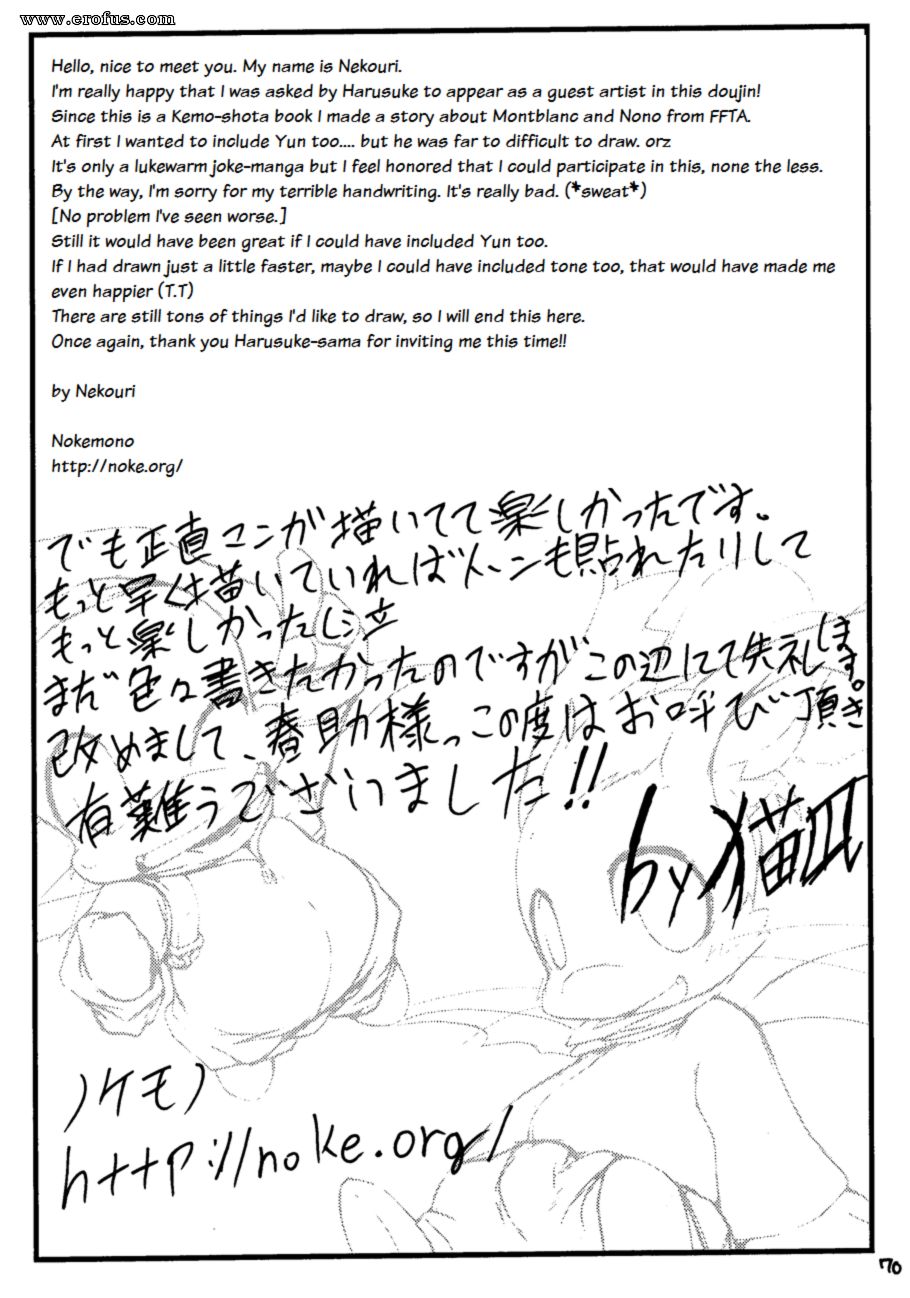 www.erofus.com
Hello, nice to meet you. My name is Nekouri.
I'm really happy that I was asked by Harusuke to appear as a guest artist in this doujin!
Since this is a Kemo-shota book I made a story about Montblanc and Nono from FFTA.
At first I wanted to include Yun too.... but he was far to difficult to draw. orz
It's only a lukewarm joke-manga but I feel honored that I could participate in this, none the less.
By the way, I'm sorry for my terrible handwriting. It's really bad. (*sweat*)
[No problem I've seen worse.]
Still it would have been great if I could have included Yun too.
If I had drawn just a little faster, maybe I could have included tone too, that would have made me
even happier (T.T)
There are still tons of things I'd like to draw, so I will end this here.
Once again, thank you Harusuke-sama for inviting me this time!!
by Nekouri
Nokemono
http://noke.org/
でも正直マンガ描いてて楽しかったです。
もっと早く描いていればトーンも貼れたりして
もっと楽しかったし泣
まだ色々書きたかったのですがこの辺にて失礼します。
改めまして、春助様っこの度はお呼び頂き
有難うございました!!
by猫瓜
ノケモノ
http://noke.org/
70